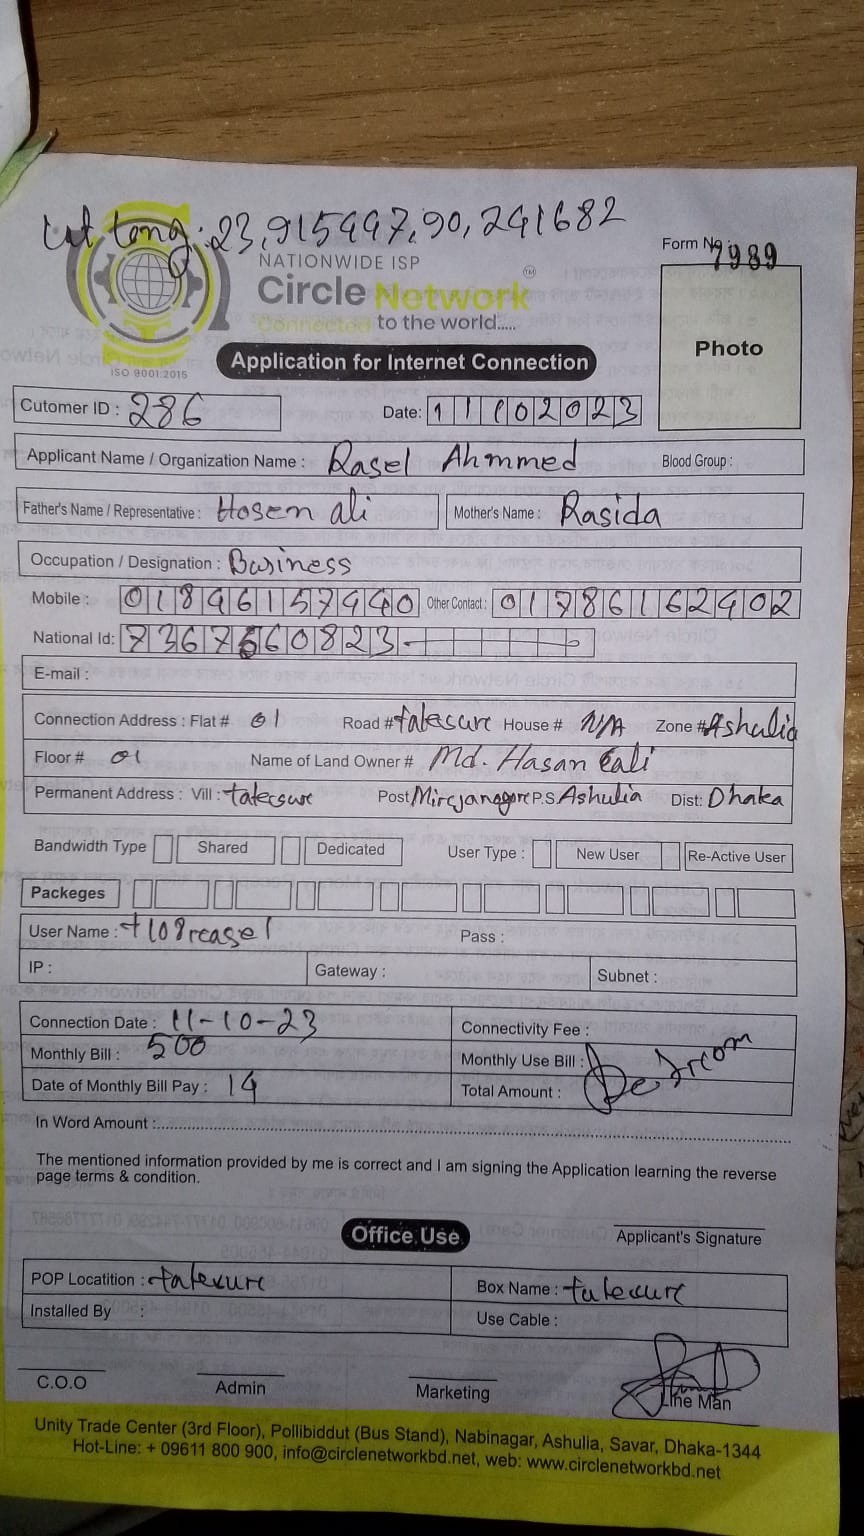 Lat Long: 23,915497,90,241682
Form No : 7989
NATIONWIDE ISP
Circle Network TM
Connected to the world.....
ISO 9001:2015
Photo
Application for Internet Connection
Cutomer ID : 286 Date: 11102023
Applicant Name / Organization Name : Rasel Ahmmed Blood Group :
Father's Name / Representative : Hosen ali Mother's Name : Rasida
Occupation / Designation : Business
Mobile : 01846157440 Other Contact : 01786162402
National Id: 7367560823-
E-mail :
Connection Address : Flat # 01 Road # tatexure House # N/A Zone # Ashulia
Floor # 01 Name of Land Owner # Md. Hasan
Permanent Address : Vill : Post P.S. Ashulia Dist: Dhaka
Bandwidth Type Shared Dedicated User Type : New User Re-Active User
Packeges
User Name : t108rasel Pass :
IP : Gateway : Subnet :
Connection Date : 11-10-23 Connectivity Fee :
Monthly Bill : 500 Monthly Use Bill :
Date of Monthly Bill Pay : 14 Total Amount :
In Word Amount :
The mentioned information provided by me is correct and I am signing the Application learning the reverse
page terms & condition.
Office Use Applicant's Signature
POP Locatition : tatexure Box Name : tatexure
Installed By : Use Cable :
C.O.O Admin Marketing Line Man
Unity Trade Center (3rd Floor), Pollibiddut (Bus Stand), Nabinagar, Ashulia, Savar, Dhaka-1344
Hot-Line: + 09611 800 900, info@circlenetworkbd.net, web: www.circlenetworkbd.net